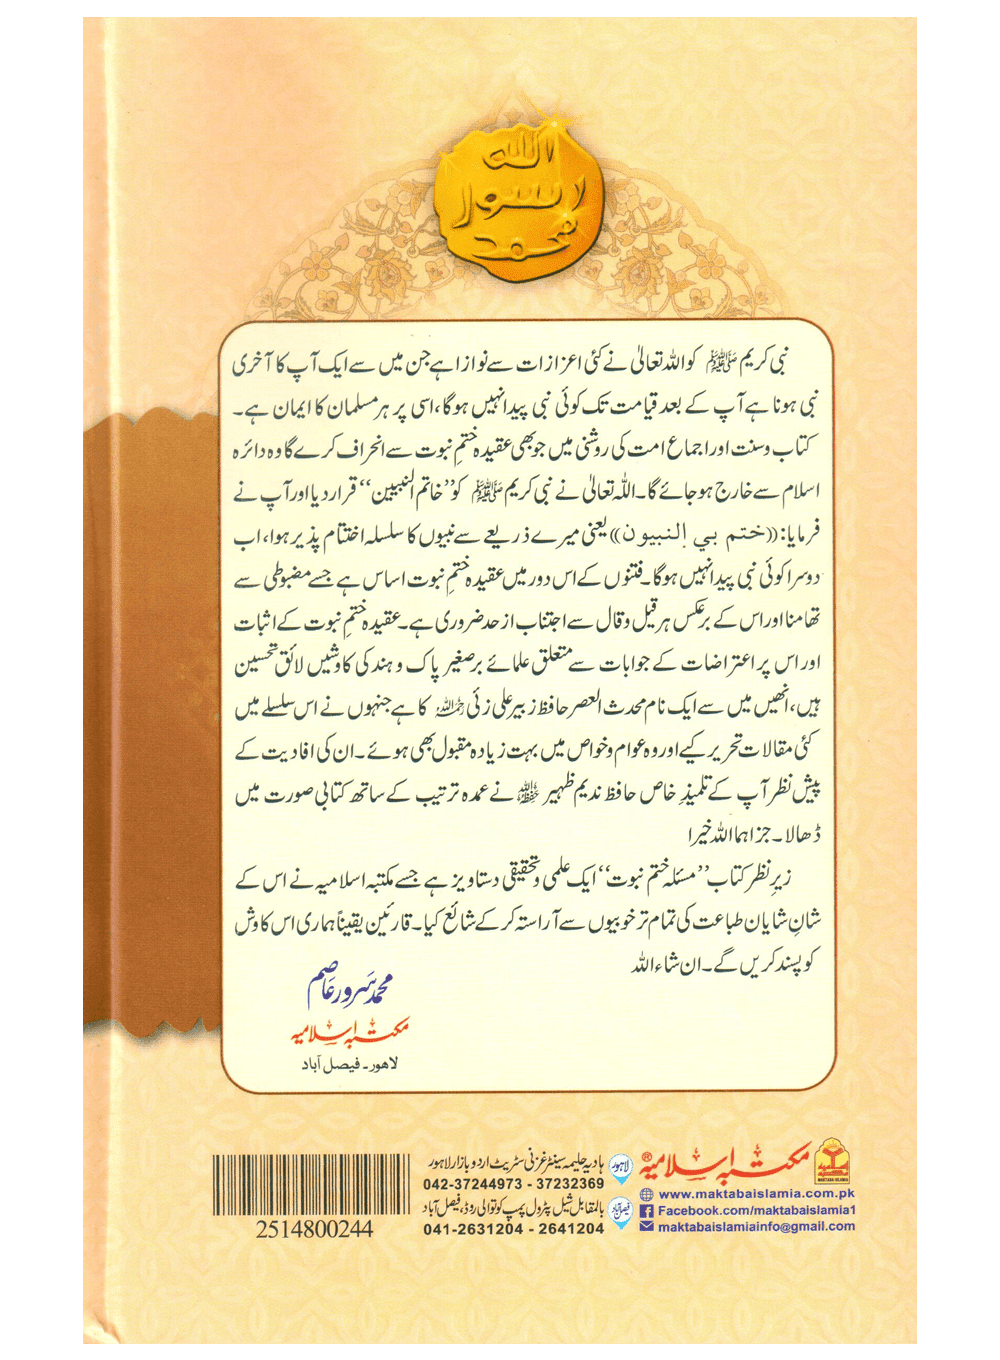 الله
رسول
محمد
نبی کریم ﷺ کو اللہ تعالیٰ نے کئی اعزازات سے نوازا ہے جن میں سے ایک آپ کا آخری
نبی ہونا ہے آپ کے بعد قیامت تک کوئی نبی پیدا نہیں ہوگا، اسی پر ہر مسلمان کا ایمان ہے۔
کتاب وسنت اور اجماع امت کی روشنی میں جو بھی عقیدہ ختمِ نبوت سے انحراف کرے گا وہ دائرہ
اسلام سے خارج ہو جائے گا۔ اللہ تعالیٰ نے نبی کریم ﷺ کو ”خاتم النبیین“ قرار دیا اور آپ نے
فرمایا: ((ختم بي النبيون)) یعنی میرے ذریعے سے نبیوں کا سلسلہ اختتام پذیر ہوا، اب
دوسرا کوئی نبی پیدا نہیں ہوگا۔ فتنوں کے اس دور میں عقیدہ ختمِ نبوت اساس ہے جسے مضبوطی سے
تھامنا اور اس کے برعکس ہر قیل وقال سے اجتناب از حد ضروری ہے۔ عقیدہ ختمِ نبوت کے اثبات
اور اس پر اعتراضات کے جوابات سے متعلق علمائے برصغیر پاک و ہند کی کاوشیں لائق تحسین
ہیں، انھیں میں سے ایک نام محدث العصر حافظ زبیر علی زئی رحمہ اللہ کا ہے جنہوں نے اس سلسلے میں
کئی مقالات تحریر کیے اور وہ عوام و خواص میں بہت زیادہ مقبول بھی ہوئے۔ ان کی افادیت کے
پیش نظر آپ کے تلمیذِ خاص حافظ ندیم ظہیر حفظہ اللہ نے عمدہ ترتیب کے ساتھ کتابی صورت میں
ڈھالا۔ جزاہما اللہ خیرا
زیرِ نظر کتاب ”مسئلہ ختم نبوت“ ایک علمی و تحقیقی دستاویز ہے جسے مکتبہ اسلامیہ نے اس کے
شانِ شایان طباعت کی تمام تر خوبیوں سے آراستہ کر کے شائع کیا۔ قارئین یقیناً ہماری اس کاوش
کو پسند کریں گے۔ ان شاء اللہ
محمد سرور عاصم
مکتبہ اسلامیہ
لاہور۔ فیصل آباد
مکتبہ اسلامیہ®
MAKTABA ISLAMIA
www.maktabaislamia.com.pk
Facebook.com/maktabaislamia1
maktabaislamiainfo@gmail.com
لاہور ہادیہ حلیمہ سینٹر غزنی سٹریٹ اردو بازار لاہور
042-37244973 - 37232369
فیصل آباد بالمقابل شیل پٹرول پمپ کوتوالی روڈ، فیصل آباد
041-2631204 - 2641204
2514800244